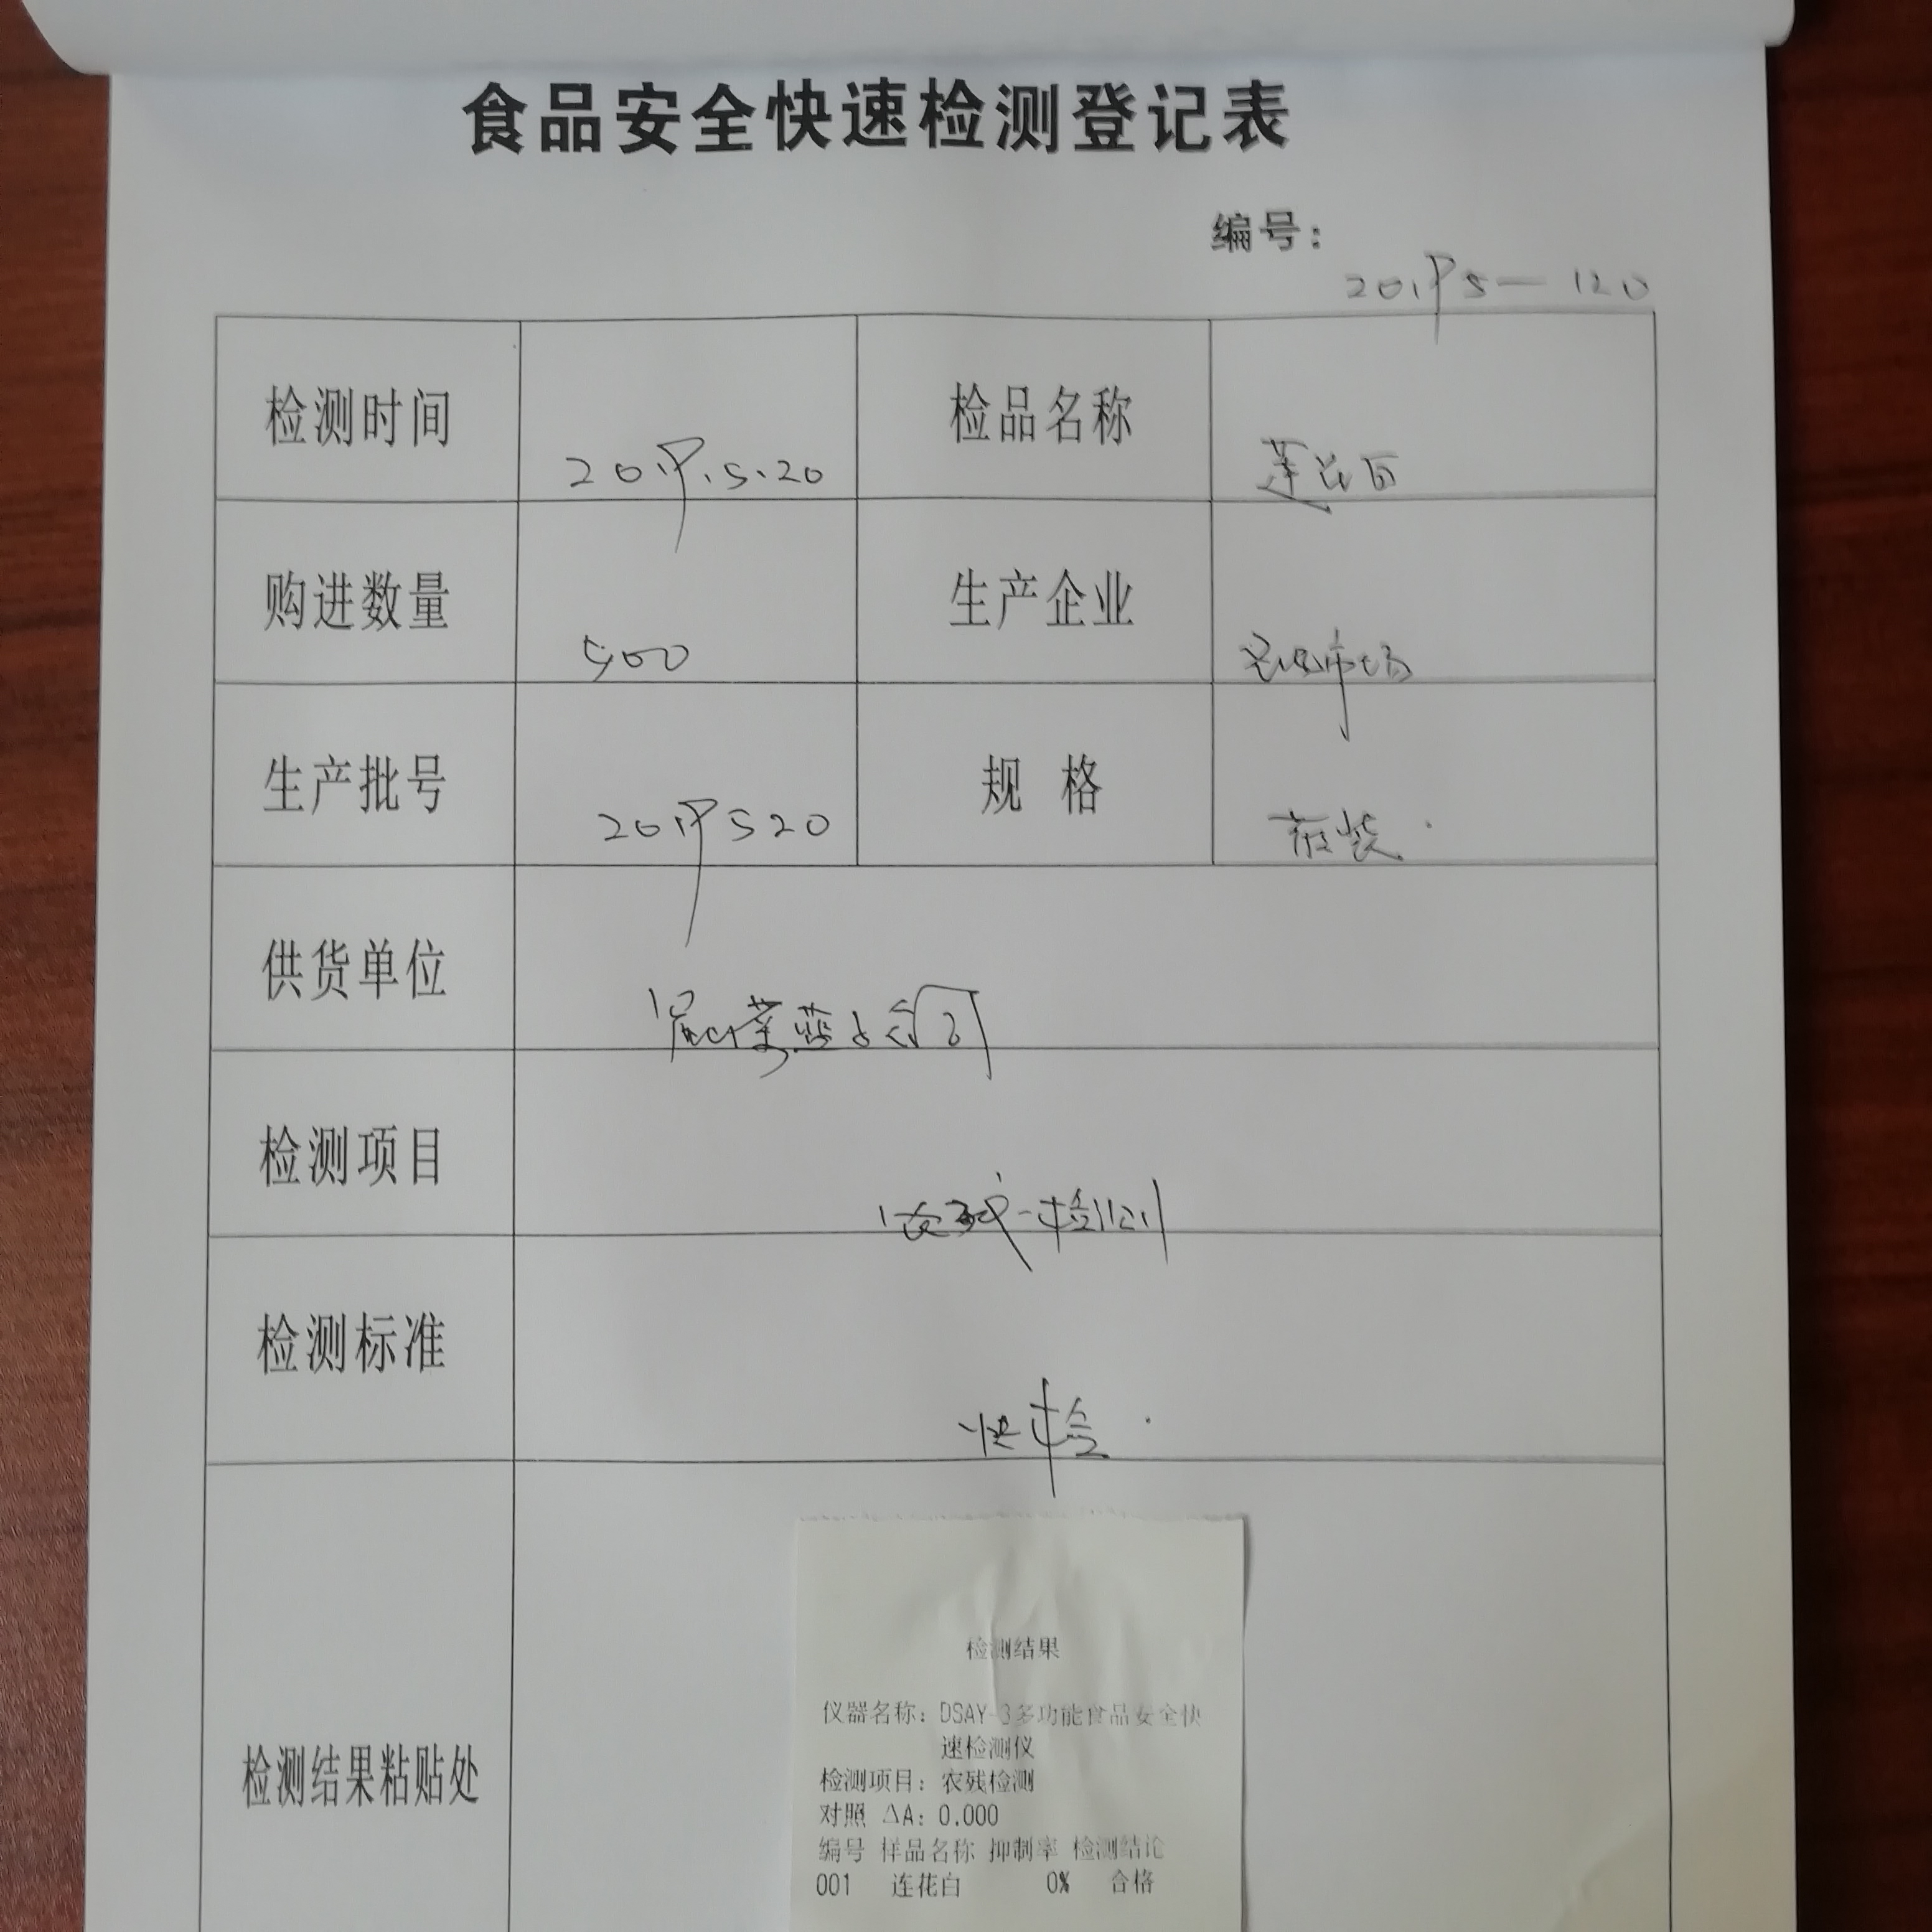 食品安全快速检测登记表
编号:
2019 5—120
检测时间 2019.5.20 检品名称 莲花白
购进数量 500 生产企业 市场
生产批号 2019520 规 格 装
供货单位 菜蓝子公司
检测项目 农残检测
检测标准 快检
检测结果粘贴处
检测结果
仪器名称: DSAY-3多功能食品安全快
速检测仪
检测项目: 农残检测
对照 ΔA: 0.000
编号 样品名称 抑制率 检测结论
001 连花白 0% 合格